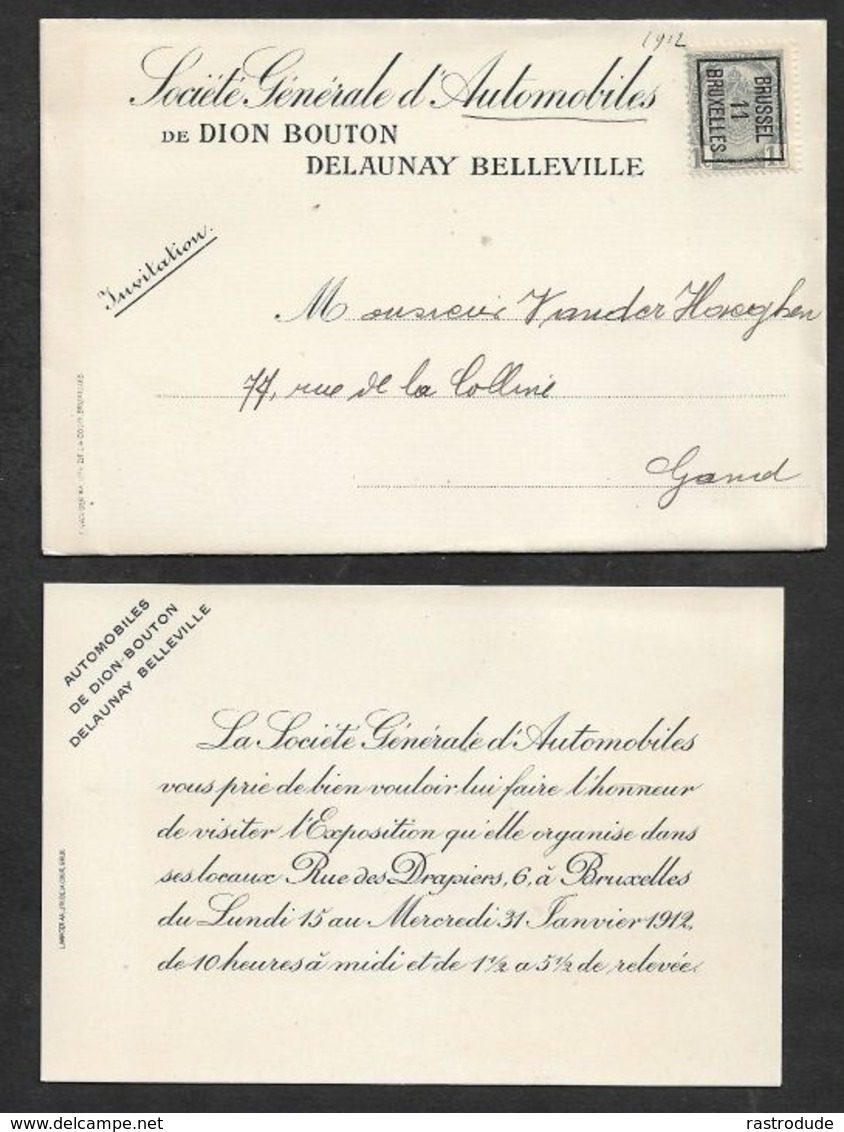 1912
Société Générale d'Automobiles
DE DION BOUTON
DELAUNAY BELLEVILLE
BRUSSEL
11
BRUXELLES
Invitation.
Monsieur Vander Haeghen
77, rue de la Colline
Gand
AUTOMOBILES
DE DION-BOUTON
DELAUNAY BELLEVILLE
La Société Générale d'Automobiles
vous prie de bien vouloir lui faire l'honneur
de visiter l'Exposition qu'elle organise dans
ses locaux Rue des Drapiers, 6, à Bruxelles
du Lundi 15 au Mercredi 31 Janvier 1912,
de 10 heures à midi et de 1 1/2 a 5 1/2 de relevée.
delcampe.net
rastrodude